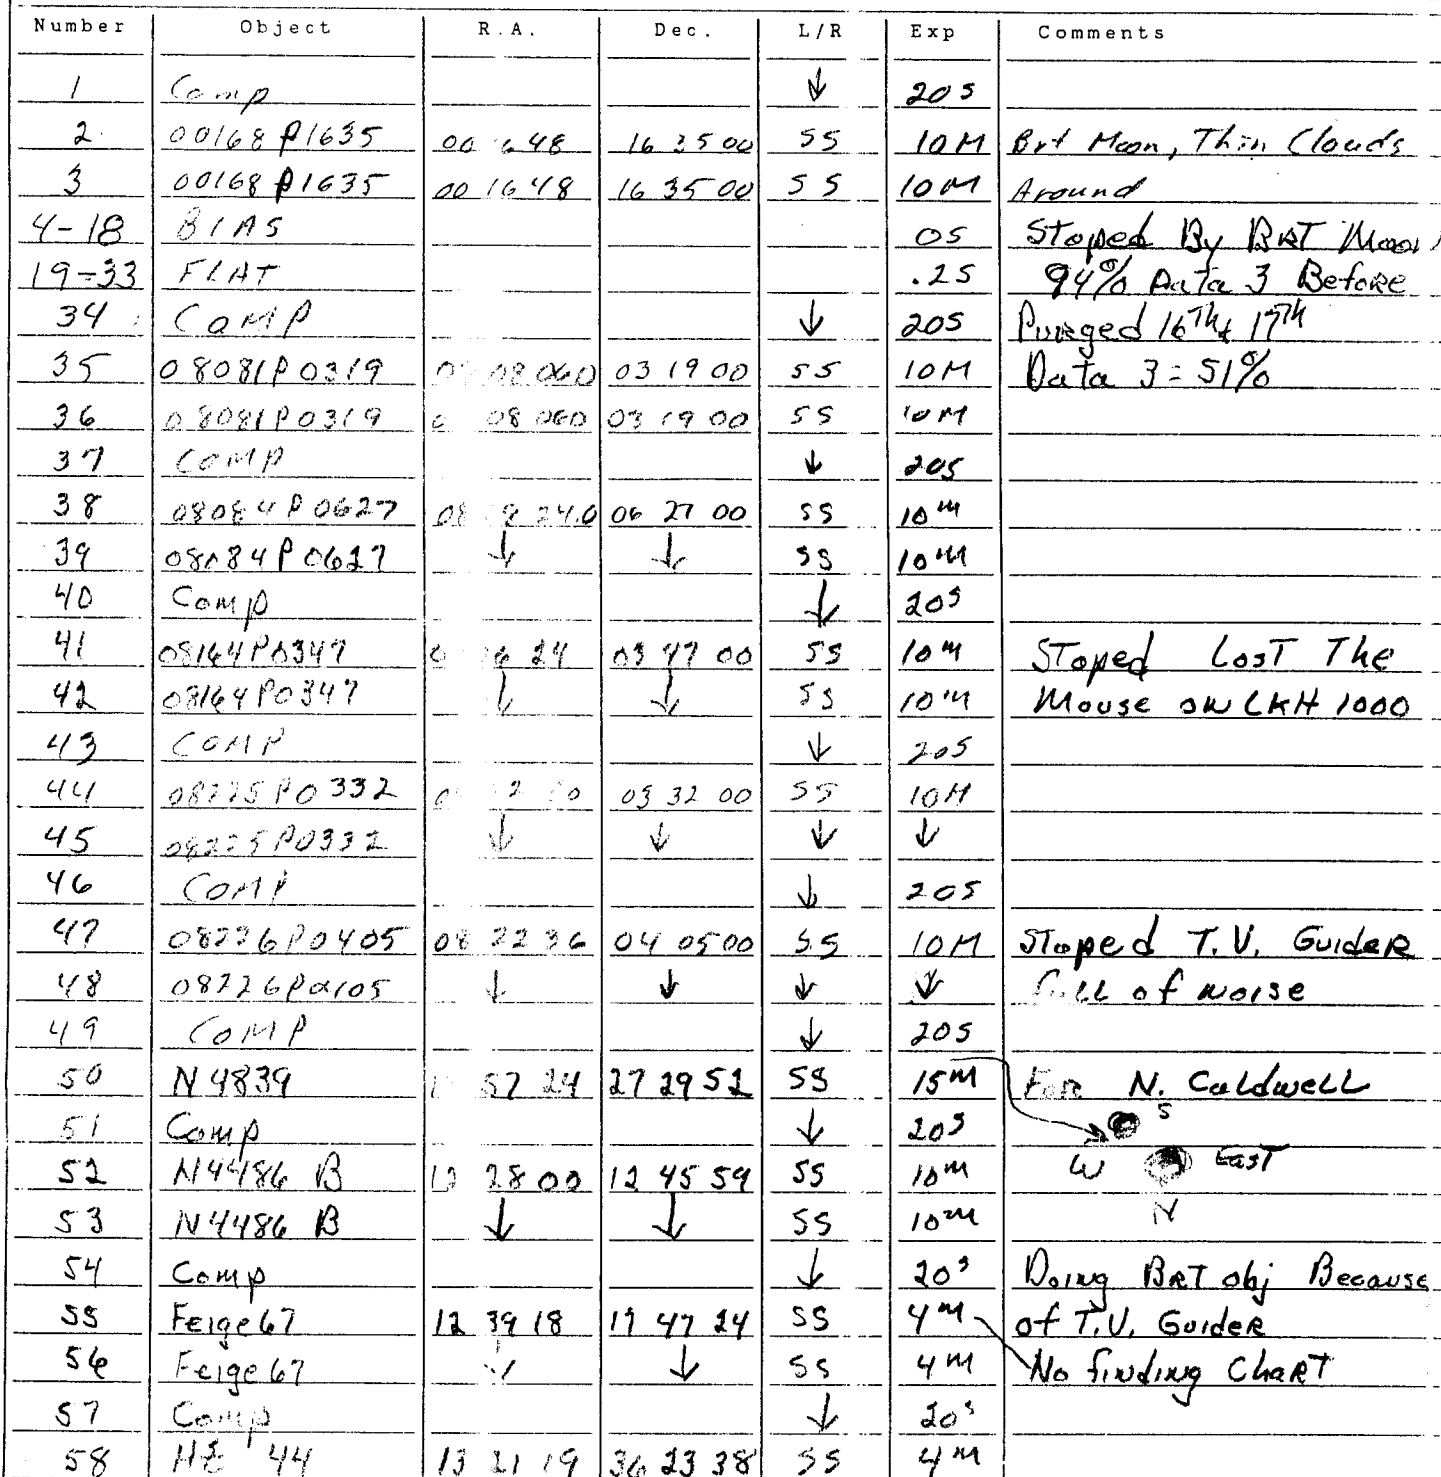 Number Object R.A. Dec. L/R Exp Comments
1 Comp ↓ 20s
2 00168P1635 00 48 16 35 00 SS 10M Brt Moon, Thin Clouds
3 00168P1635 00 16 48 16 35 00 SS 10M Around
4-18 BIAS 0S Stoped By BRT Moon
19-33 FLAT .2S 94% Data 3 Before
34 COMP ↓ 20S Purged 16Th & 17Th
35 08081P0319 08 060 03 19 00 SS 10M Data 3 = 51%
36 08081P0319 08 060 03 19 00 SS 10M
37 COMP ↓ 20S
38 08084P0627 08 24.0 06 27 00 SS 10M
39 08084P0627 ↓ ↓ SS 10M
40 Comp ↓ 20S
41 08164P0347 24 03 47 00 SS 10M Stoped Lost The
42 08164P0347 ↓ ↓ SS 10M Mouse on LKH 1000
43 COMP ↓ 20S
44 08225P0332 03 32 00 SS 10M
45 08225P0332 ↓ ↓ ↓ ↓
46 COMP ↓ 20S
47 08226P0405 08 22 36 04 05 00 SS 10M Stoped T.V. Guider
48 08226P0405 ↓ ↓ ↓ ↓ full of noise
49 COMP ↓ 20S
50 N4839 57 24 27 29 52 SS 15M For N. Caldwell
S
51 Comp ↓ 20S
W East
52 N4486 B 12 28 00 12 45 59 SS 10M
53 N4486 B ↓ ↓ SS 10M N
54 Comp ↓ 20S Doing BRT obj Because
55 Feige67 12 39 18 17 47 24 SS 4M of T.V. Guider
56 Feige67 ↓ ↓ SS 4M No finding Chart
57 Comp ↓ 20S
58 HZ 44 13 21 19 36 23 38 SS 4M